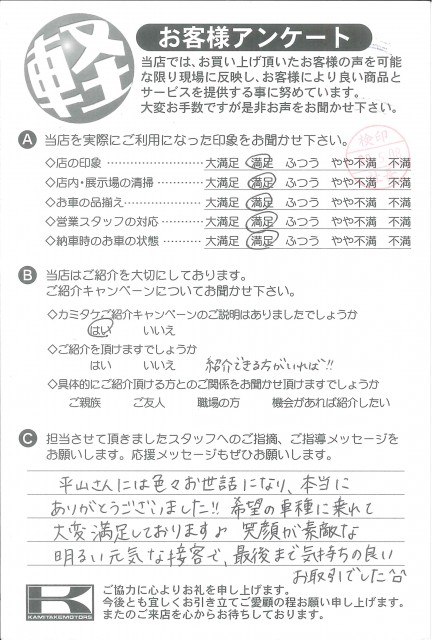 軽
お客様アンケート
当店では、お買い上げ頂いたお客様の声を可能
な限り現場に反映し、お客様により良い商品と
サービスを提供する事に努めています。
大変お手数ですが是非お声をお聞かせ下さい。
A 当店を実際にご利用になった印象をお聞かせ下さい。
検印
◇店の印象 ………………… 大満足 満足 ふつう やや不満 不満
◇店内・展示場の清掃 ………… 大満足 満足 ふつう やや不満 不満
◇お車の品揃え ……………… 大満足 満足 ふつう やや不満 不満
◇営業スタッフの対応 ………… 大満足 満足 ふつう やや不満 不満
◇納車時のお車の状態 ………… 大満足 満足 ふつう やや不満 不満
B 当店はご紹介を大切にしております。
ご紹介キャンペーンについてお聞かせ下さい。
◇カミタケご紹介キャンペーンのご説明はありましたでしょうか
はい いいえ
◇ご紹介を頂けますでしょうか
はい いいえ 紹介できる方がいれば!!
◇具体的にご紹介頂ける方とのご関係をお聞かせ頂けますでしょうか
ご親族 ご友人 職場の方 機会があれば紹介したい
C 担当させて頂きましたスタッフへのご指摘、ご指導メッセージを
お願いします。応援メッセージもぜひお願いします。
平山さんには色々お世話になり、本当に
ありがとうございました!! 希望の車種に乗れて
大変満足しております♪ 笑顔が素敵な
明るい元気な接客で、最後まで気持ちの良い
お取引でした^^
K
KAMITAKEMOTORS
ご協力に心よりお礼を申し上げます。
今後とも宜しくお引き立てご愛顧の程お願い申し上げます。
またのご来店を心からお待ちしております。